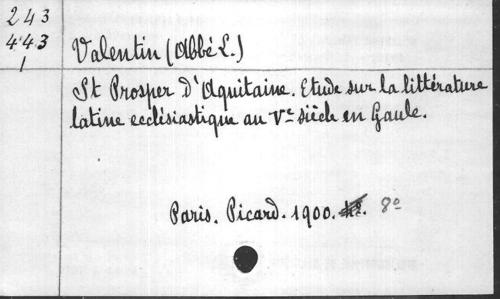 243
443
1
Valentin (Abbé L.)
St Prosper d'Aquitaine. Etude sur la littérature
latine ecclésiastique au Ve siècle en Gaule.
Paris. Picard. 1900. 8°